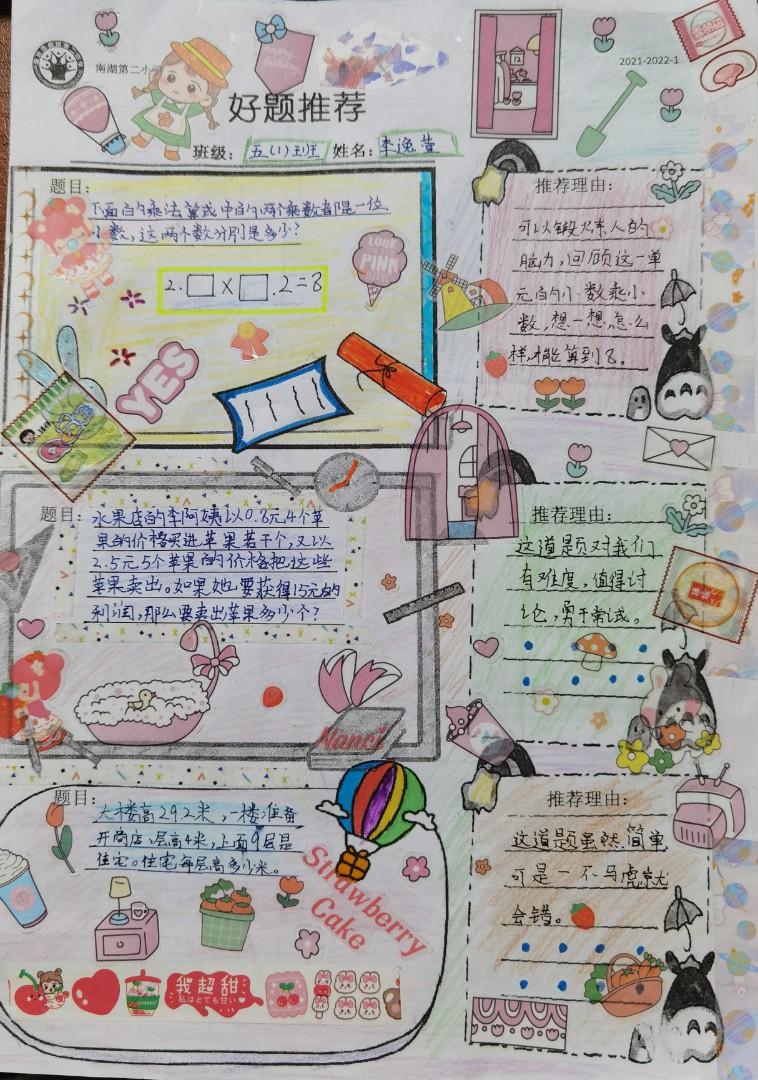 南湖第二小
2021-2022-1
好题推荐
班级：五(1)班 姓名：李逸萱
题目：
下面的乘法算式中的两个乘数都是一位
小数，这两个数分别是多少？
2.□×□.2=8
LOOK
PINK
YES
推荐理由：
可以锻炼人的
脑力，回顾这一单
元的小数乘小
数，想一想，怎么
样，才能算到8。
题目：
水果店的李阿姨以0.8元4个苹
果的价格买进苹果若干个，又以
2.5元5个苹果的价格把这些
苹果卖出。如果她要获得15元的
利润，那么要卖出苹果多少个？
Nanci
推荐理由：
这道题对我们
有难度，值得讨
论，勇于常试。
题目：
大楼高29.2米，一楼准备
开商店，层高4米，上面9层是
住宅。住宅每层高多少米。
Strawberry
Cake
我超甜
私はとても甘い
推荐理由：
这道题虽然简单，
可是一不马虎就
会错。